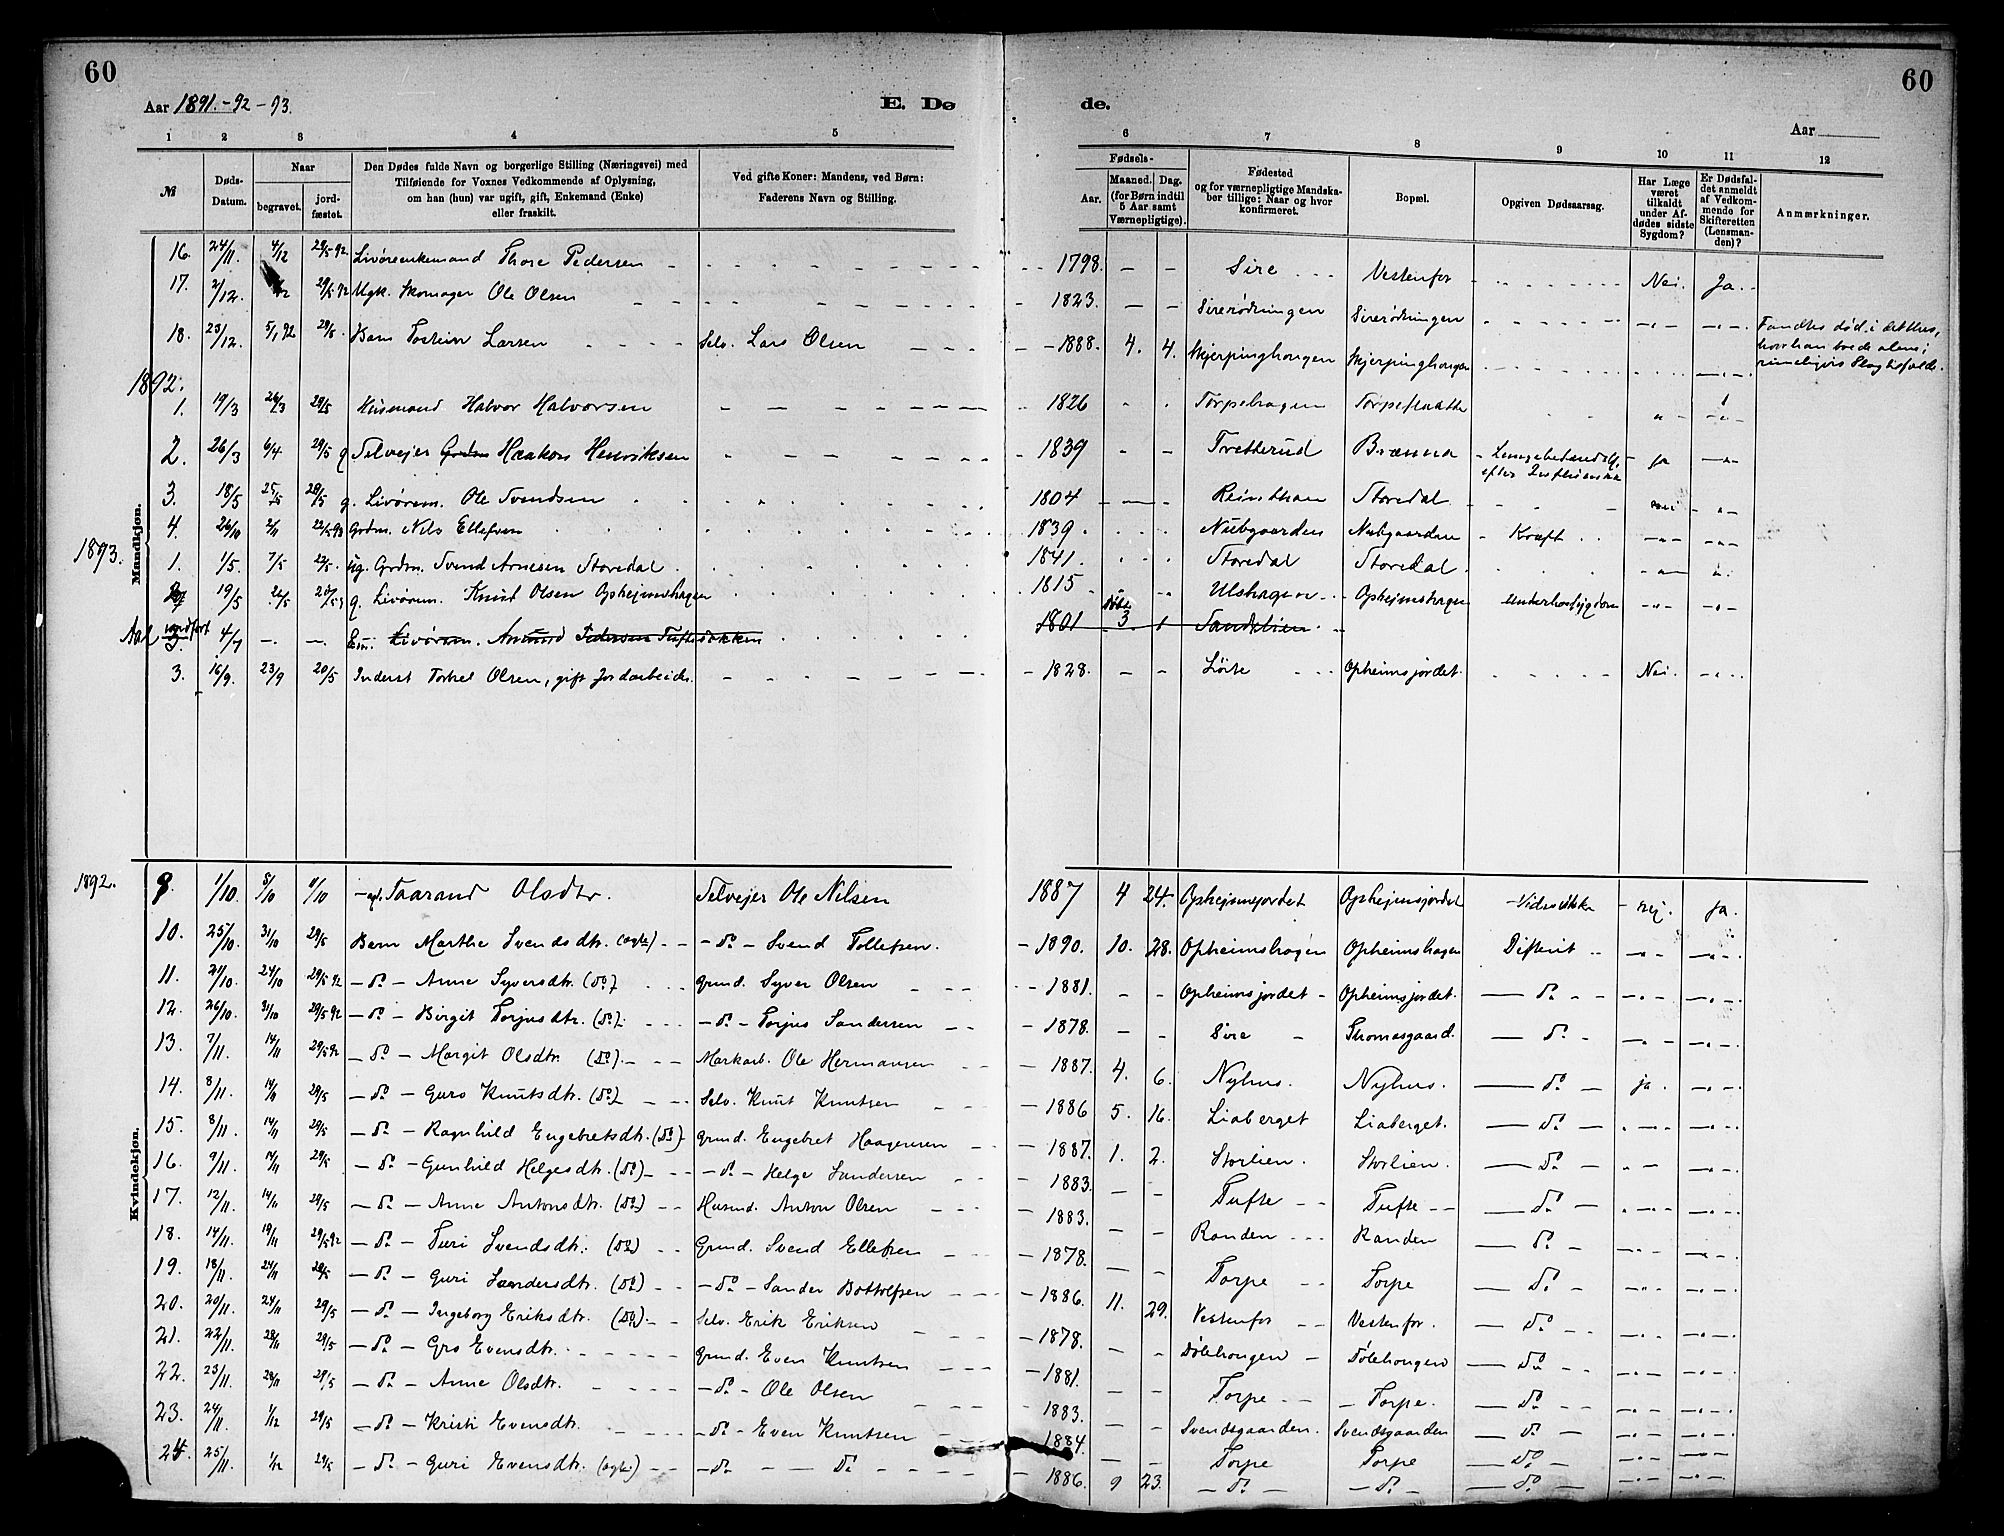 60
60
Aar 1891.-92-93.
E. Dø
de.
Aar
1 2 3 4 5 6 7 8 9 10 11 12
№
Døds-Datum.
Naar
begravet.
jord-fæstet.
Den Dødes fulde Navn og borgerlige Stilling (Næringsvei) med
Tilføiende for Voxnes Vedkommende af Oplysning,
om han (hun) var ugift, gift, Enkemand (Enke)
eller fraskilt.
Ved gifte Koner: Mandens, ved Børn:
Faderens Navn og Stilling.
Fødsels-
Aar.
Maaned. Dag.
(for Børn indtil
5 Aar samt
Værnepligtige).
Fødested
og for værnepligtige Mandska-
ber tillige: Naar og hvor
konfirmeret.
Bopæl.
Opgiven Dødsaarsag.
Har Læge
været
tilkaldt
under Af-
dødes sidste
Sygdom?
Er Dødsfal-
det anmeldt
af Vedkom-
mende for
Skifteretten
(Lensman-
den)?
Anmærkninger.
Mandkjøn.
16. 24/11. 4/12 29/5 92 Livøreenkemand Thore Pedersen 1798. Sire Vestenfor Nei. Ja.
17. 2/12. 29/5 92 Ugk. Skomager Ole Olsen 1823. Sirerødningen Sirerødningen
18. 23/12. 5/1 92 29/5. Barn Torstein Larsen Selv. Lars Olsen 1888. 4. 4. Skjerpinghougen Skjerpinghougen Fandtes død i det Hus, hvor han boede alene;
1892.
1. 19/3 26/3 29/5 Husmand Halvor Halvorsen 1826 Torpehagen
2. 26/3 6/4 29/5 g Selvejer Grdm Haakon Henriksen 1839 Tretterud Brænna Lungebetændelse efter Influenza ja
3. 18/5 25/5 29/5 g. Livørem. Ole Svendsen 1804 Storedal
4. 26/10 2/11 22/5 93 Grdm. Nils Ellefsen 1839 Nubgaarden Nubgaarden Kræft
1893.
1. 1/5. 7/5 22/5. ug. Grdm. Svend Arnesen Storedal 1841. Storedal Storedal
2. 19/5 22/5 g. Livørem. Knud Olsen Opheimshagen 1815 Ulshagen Opheimshagen Underlivssygdom
Aal indført 3. 4/7 Em. Livørem. Amund Pedersen Tuftebakken 1801 3 1 Sandelien
3. 16/9. 23/9 20/5 Inderst Torkel Olsen, gift Jordarbeider 1828. Opheimsjordet. Nei.
Kvindekjøn.
1892.
9. 1/10. 8/10 9/10 Taarand Olsdtr. Selvejer Ole Nilsen 1887 4 24. Opheimsjordet Opheimsjordet nej. ja.
10. 25/10. 31/10 29/5 Barn Marthe Svendsdtr. (ægte) - do - Svend Tollefsen. 1890. 10. 28. Opheimshagen Opheimshagen Difterit
11. 21/10. 24/10 29/5 92 - do - Anne Syversdtr. (do) Grund. Syver Olsen 1881. Opheimsjordet Opheimsjordet. do
12. 26/10. 31/10 29/5 92 - do - Birgit Torjusdtr. (do) - do - Torjus Sandersen 1878. Sire Thomasgaard. do
13. 7/11. 14/11 29/5 92 - do - Margit Olsdtr. (do) Markarb. Ole Hermansen 1887. 4. 6. Nyhus. Nyhus. do ja.
14. 8/11. 14/11 29/5 - do - Guro Knutsdtr. (do) Selv. Knut Knutsen 1886 5. 16. Liaberget Liaberget. do
15. 8/11. 14/11 29/5 - do - Ragnhild Engebretsdtr. (do) Grund. Engebret Haagensen 1887. 1. 2. Storlien. Storlien. do
16. 9/11. 14/11 29/5 - do - Gunhild Helgesdtr. (do) - do - Helge Sandersen 1883. Tufte Tufte do
17. 12/11. 14/11 29/5 - do - Anne Antonsdtr. (do) Husmd. Anton Olsen 1883. Randen Randen do
18. 14/11. 19/11 29/5 92 - do - Turi Svendsdtr. (do) Grund. Svend Ellefsen 1878. Torpe Torpe do
19. 18/11. 24/11 29/5 - do - Guri Sandersdtr. (do) - do - Sander Bottolfsen 1886. 11. 29. Vestenfor Vestenfor. do
20. 20/11. 24/11 29/5 - do - Ingeborg Eriksdtr. (do) Selv. Erik Eriksen 1878. Dølehougen Dølehougen do
21. 22/11. 28/11 29/5 - do - Gro Evensdtr. Grund. Even Knutsen 1881. Torpe Torpe. do
22. 23/11. 29/11 29/5 - do - Anne Olsdtr. - do - Ole Olsen 1883. Svendsgaarden. Svendsgaarden do
23. 24/11. 1/12 29/5 - do - Kristi Evensdtr. - do - Even Knutsen 1884. Torpe Torpe do
24. 25/11. 1/12 29/5 - do - Guri Evensdtr. (ægte) - do - do 1886. 9 23. - do - - do - do